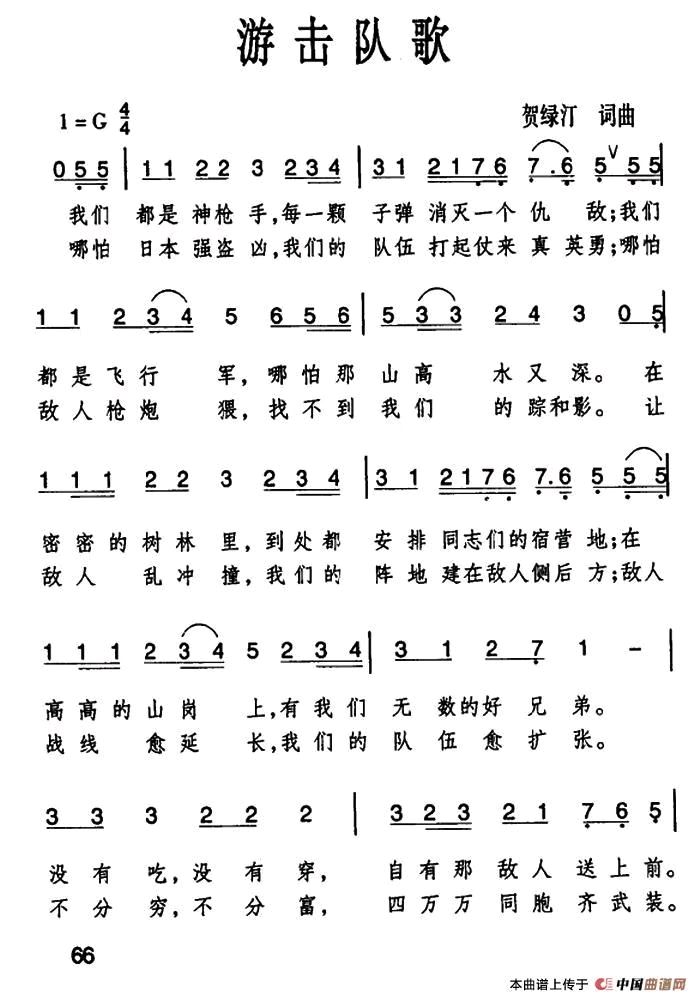 游击队歌
1=G 4/4
贺绿汀 词曲
0 5 5 | 1 1 2 2 3 2 3 4 | 3 1 2 1 7 6 7 . 6 5 V 5 5 |
我们 都是神枪手,每一颗 子弹消灭一个仇 敌;我们
哪怕 日本强盗凶,我们的 队伍打起仗来真英勇;哪怕
1 1 2 3 4 5 6 5 6 | 5 3 3 2 4 3 0 5 |
都是飞行 军,哪怕那山高 水又深。在
敌人枪炮 猥,找不到我们 的踪和影。让
1 1 1 2 2 3 2 3 4 | 3 1 2 1 7 6 7 . 6 5 5 5 |
密密的树林里,到处都 安排同志们的宿营地;在
敌人 乱冲撞,我们的 阵地建在敌人侧后方;敌人
1 1 1 2 3 4 5 2 3 4 | 3 1 2 7 1 - |
高高的山岗 上,有我们 无数的好兄弟。
战线 愈延 长,我们的 队伍愈扩张。
3 3 3 2 2 2 | 3 2 3 2 1 7 6 5 |
没有吃,没有穿, 自有那敌人送上前。
不分穷,不分富, 四万万同胞齐武装。
66
本曲谱上传于 中国曲谱网